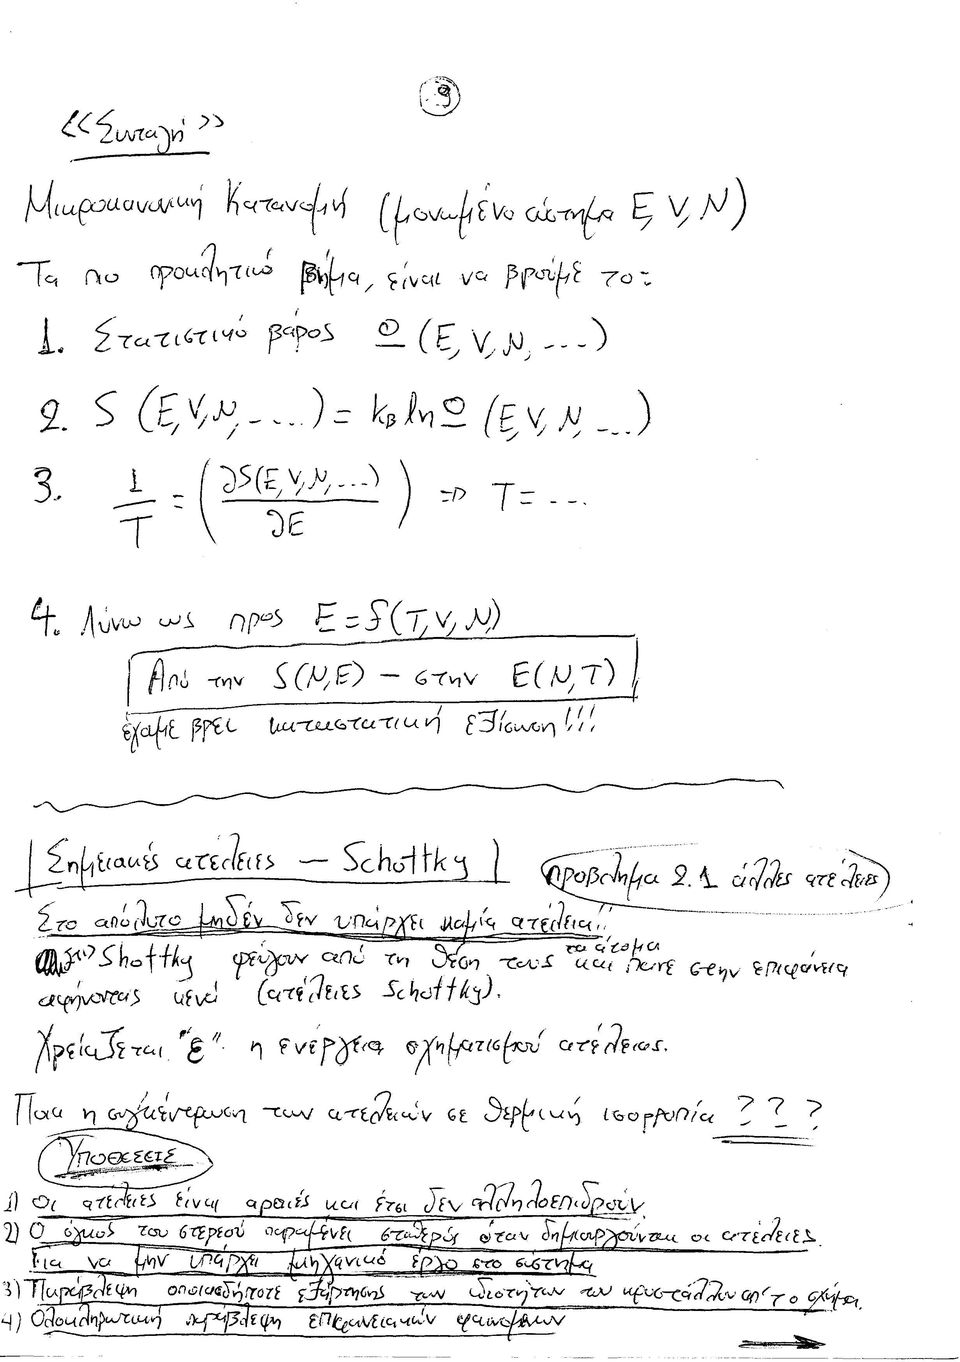 9
<<Συνταγή>>
Μικροκανονική Κατανομή (μονωμένο σύστημα E, V, N)
Το πιο προκλητικό βήμα, είναι να βρούμε το:
1. Στατιστικό βάρος Ω (E, V, N, ---)
2. S (E, V, N, -...) = kB ln Ω (E, V, N, -..)
3. 1/T = (∂S(E, V, N, ---)/∂E) => T = ---
4. Λύνω ως προς E = f(T, V, N)
Από την S(N,E) – στην E(N,T)
έχουμε βρει καταστατική εξίσωση!!!
Σημειακές ατέλειες – Schottky
Πρόβλημα 2.1 άλλες ατέλειες
Στο απόλυτο μηδέν δεν υπάρχει καμία ατέλεια!!
Shottky φεύγουν από τη θέση τους τα άτομα και πάνε στην επιφάνεια
αφήνοντας κενά (ατέλειες Schottky).
Χρειάζεται "ε" η ενέργεια σχηματισμού ατέλειας.
Ποια η συγκέντρωση των ατελειών σε θερμική ισορροπία ???
ΥΠΟΘΕΣΕΙΣ
1) Οι ατέλειες είναι αραιές και έτσι δεν αλληλοεπιδρούν.
2) Ο όγκος του στερεού παραμένει σταθερός όταν δημιουργούνται οι ατέλειες.
Για να μην υπάρχει μηχανικό έργο στο σύστημα
3) Παράβλεψη οποιασδήποτε εξάρτησης των ιδιοτήτων των κρυστάλλων απ' το σχήμα.
4) Ολοκληρωτική παράβλεψη επιφανειακών φαινομένων